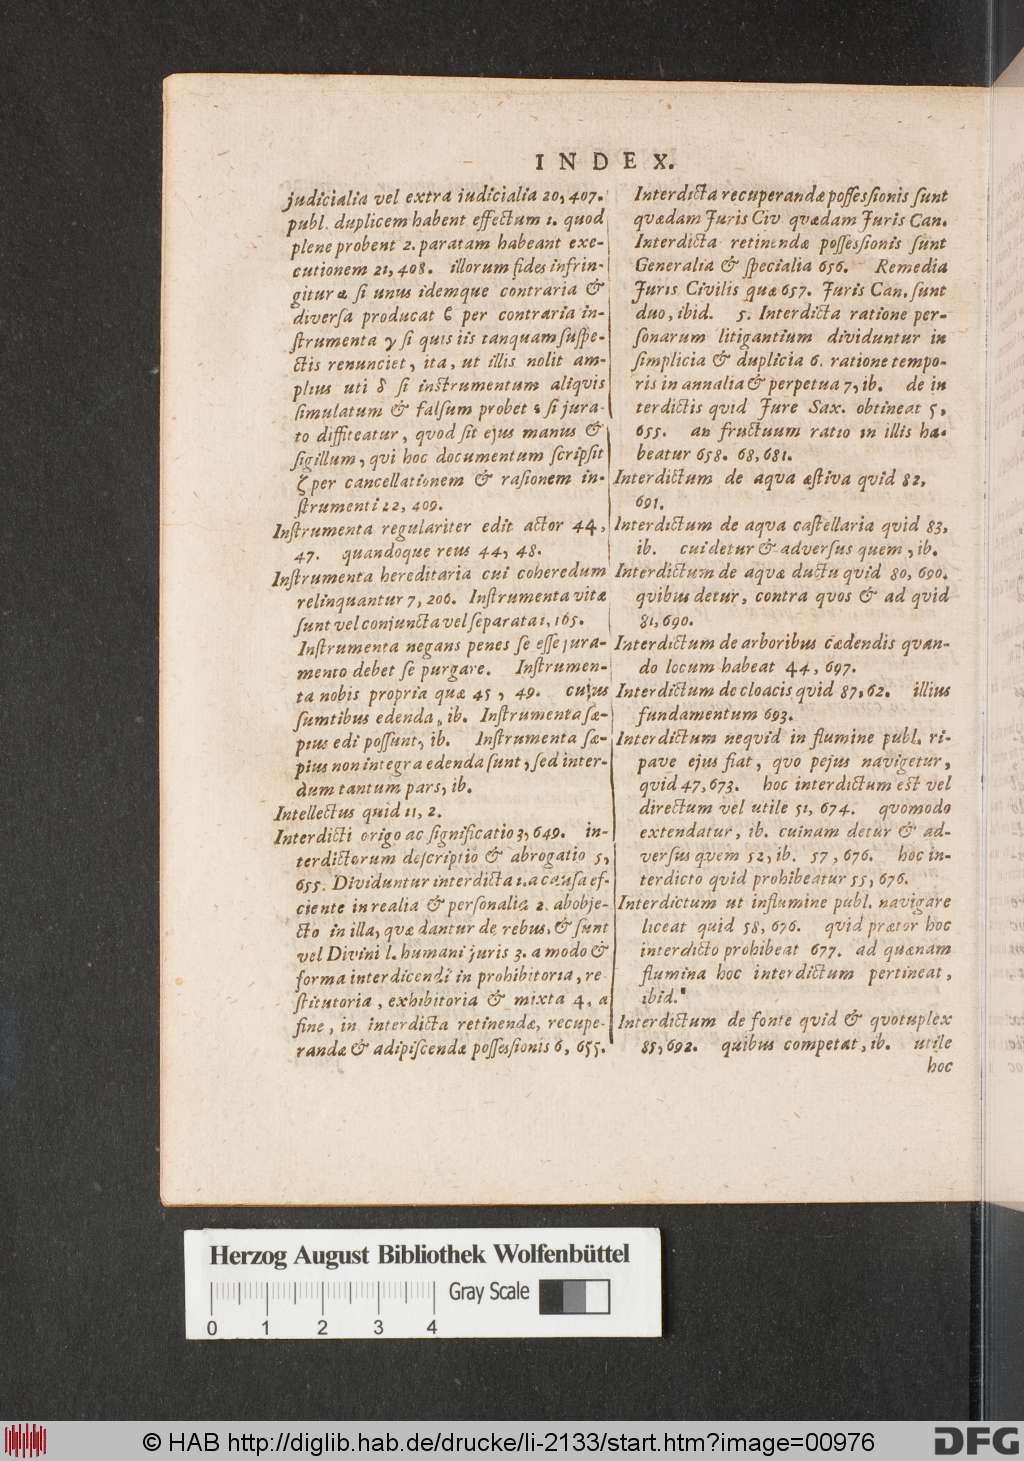 INDEX.
judicialia vel extra judicialia 20, 407.
publ. duplicem habent effectum 1. quod
plene probent 2. paratam habeant exe-
cutionem 21, 408. illorum fides infrin-
gitur α si unus idemque contraria &
diversa producat ϐ per contraria in-
strumenta γ si quis iis tanquam suspe-
ctis renunciet, ita, ut illis nolit am-
plius uti δ si instrumentum aliqvis
simulatum & falsum probet ε si jura-
to diffiteatur, qvod sit ejus manus &
sigillum, qvi hoc documentum scripsit
ζ per cancellationem & rasionem in-
strumenti 22, 409.
Instrumenta regulariter edit actor 44,
47. quandoque reus 44, 48.
Instrumenta hereditaria cui coheredum
relinquantur 7, 206. Instrumenta vitæ
sunt vel conjuncta vel separata 1, 165.
Instrumenta negans penes se esse jura-
mento debet se purgare. Instrumen-
ta nobis propria quæ 45, 49. cujus
sumtibus edenda, ib. Instrumenta sæ-
pius edi possunt, ib. Instrumenta sæ-
pius non integra edenda sunt, sed inter-
dum tantum pars, ib.
Intellectus quid 11, 2.
Interdicti origo ac significatio 3, 649. in-
terdictorum descriptio & abrogatio 5,
655. Dividuntur interdicta 1. a causa ef-
ciente in realia & personalia 2. ab obje-
cto in illa, qvæ dantur de rebus, & sunt
vel Divini l. humani juris 3. a modo &
forma interdicendi in prohibitoria, re
stitutoria, exhibitoria & mixta 4, a
fine, in interdicta retinendæ, recupe-
randæ & adipiscendæ possessionis 6, 655.
Interdicta recuperandæ possessionis sunt
qvædam Juris Civ qvædam Juris Can.
Interdicta retinendæ possessionis sunt
Generalia & specialia 656. Remedia
Juris Civilis quæ 657. Juris Can. sunt
duo, ibid. 5. Interdicta ratione per-
sonarum litigantium dividuntur in
simplicia & duplicia 6. ratione tempo-
ris in annalia & perpetua 7, ib. de in
terdictis qvid Jure Sax. obtineat 5,
655. an fructuum ratio in illis ha-
beatur 658. 68, 681.
Interdictum de aqva æstiva qvid 82,
691.
Interdictum de aqva castellaria qvid 83,
ib. cui detur & adversus quem, ib.
Interdictum de aqvæ ductu qvid 80, 690.
qvibus detur, contra qvos & ad qvid
81, 690.
Interdictum de arboribus cædendis qvan-
do locum habeat 44, 697.
Interdictum de cloacis qvid 87, 62. illius
fundamentum 693.
Interdictum neqvid in flumine publ. ri-
pave ejus fiat, qvo pejus navigetur,
qvid 47, 673. hoc interdictum est vel
directum vel utile 51, 674. qvomodo
extendatur, ib. cuinam detur & ad-
versus qvem 52, ib. 57, 676. hoc in-
terdicto qvid prohibeatur 55, 676.
Interdictum ut influmine publ. navigare
liceat quid 58, 676. qvid prætor hoc
interdicto prohibeat 677. ad quænam
flumina hoc interdictum pertineat,
ibid.
Interdictum de fonte qvid & qvotuplex
85, 692. quibus competat, ib. utile
hoc
Herzog August Bibliothek Wolfenbüttel
Gray Scale
0 1 2 3 4
© HAB http://diglib.hab.de/drucke/li-2133/start.htm?image=00976
DFG